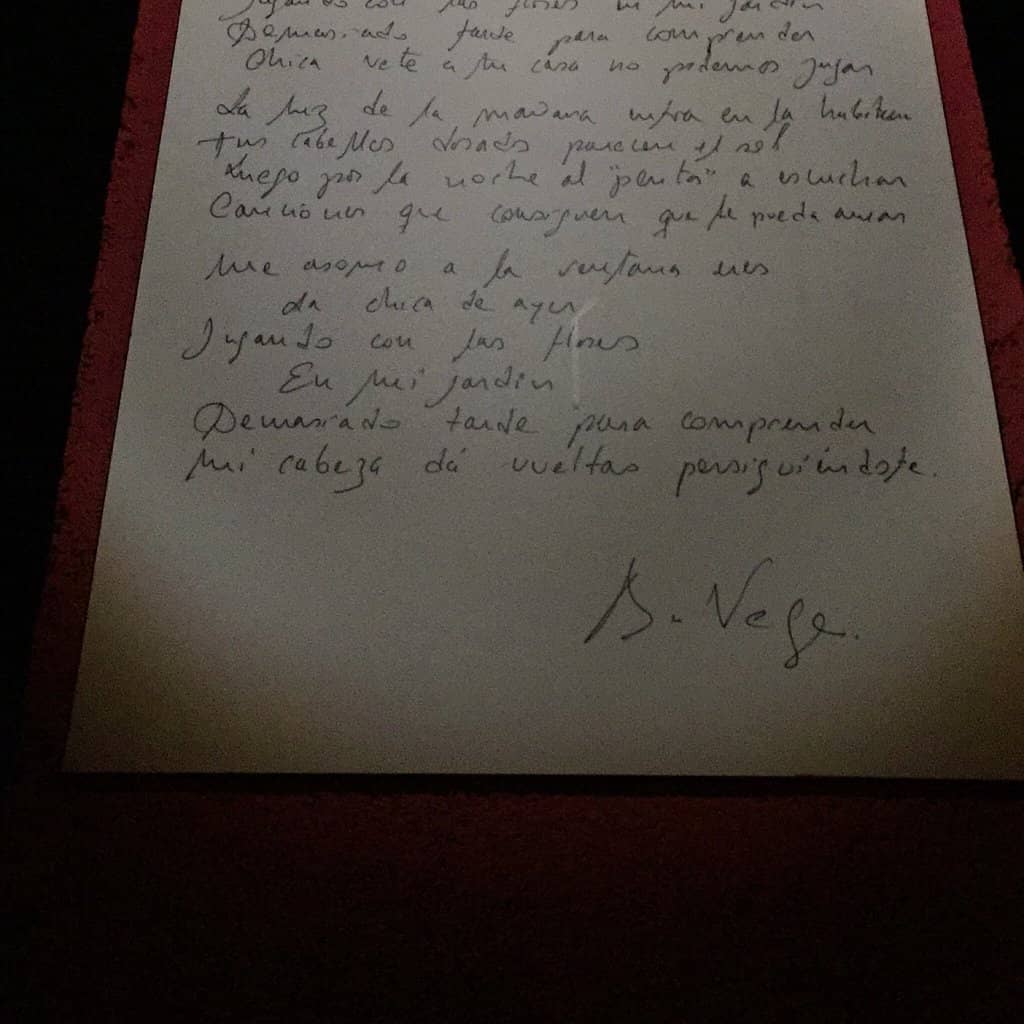 Jugando con las flores en mi jardín
Demasiado tarde para comprender
Chica vete a tu casa no podemos jugar
La luz de la mañana entra en la habitacion
tus cabellos dorados parecen el sol
Luego por la noche al "penta" a escuchar
Canciones que consiguen que te pueda amar
Me asomo a la ventana eres
La chica de ayer
Jugando con las flores
En mi jardín
Demasiado tarde para comprender
Mi cabeza dá vueltas persiguiéndote.
A. Vega.